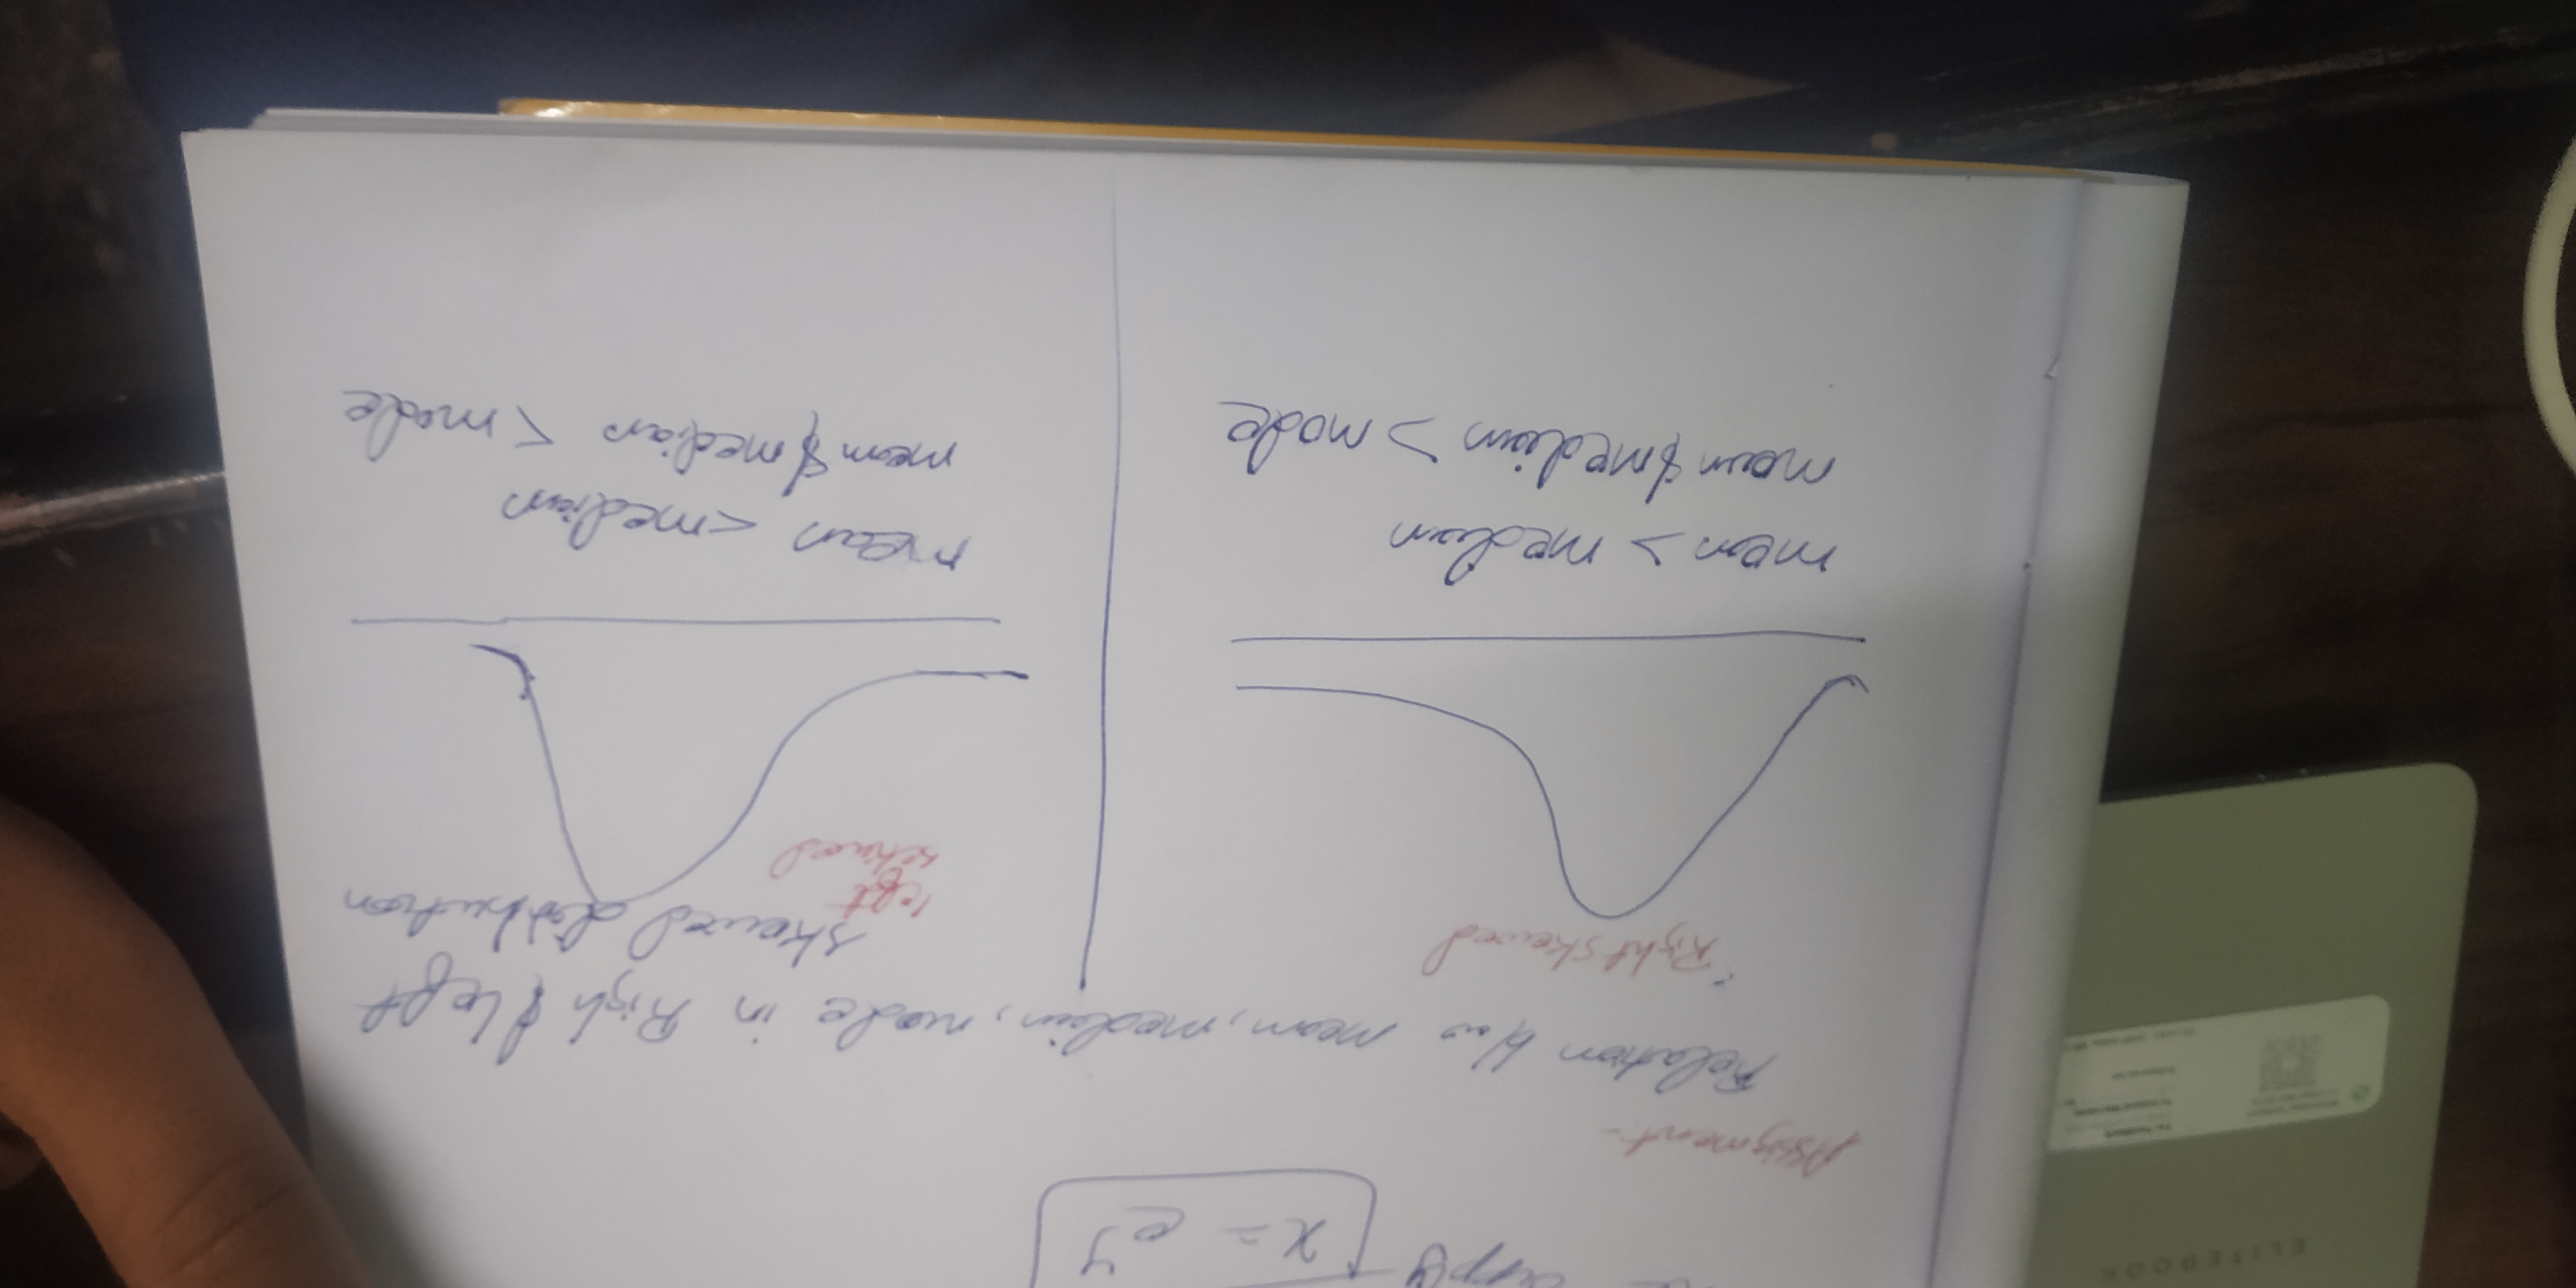 ELITEBOOK
apply
x = e^y
Assigment -
Relation b/w mean, median, mode in Righ & left
skewed distribution
Right skewed
mean > median
mean & median > mode
left
mean < median
mean & median < mode